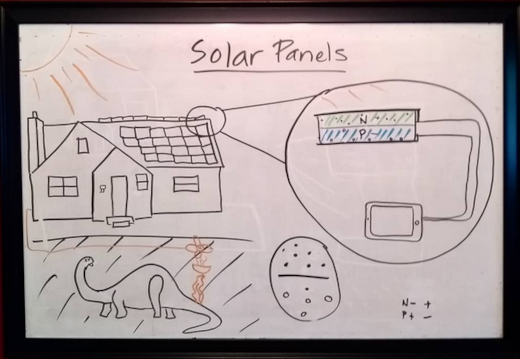 Solar Panels
N
P
N- +
P+ -